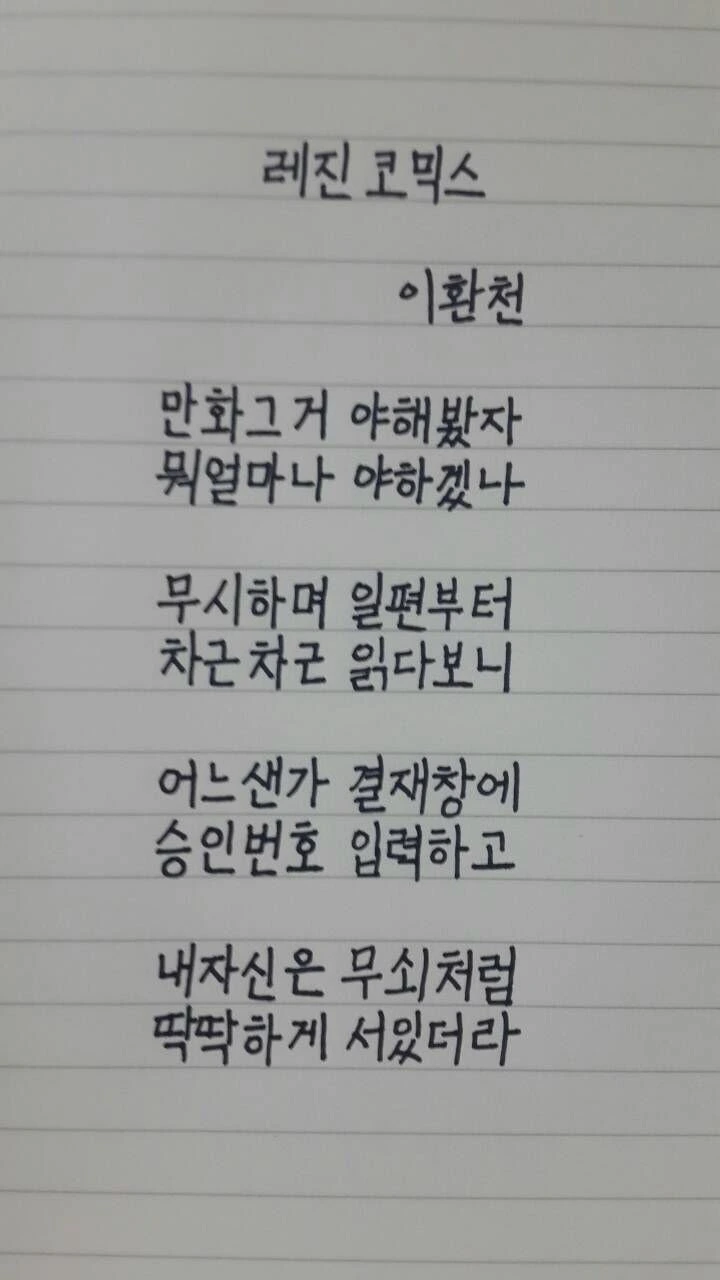 레진 코믹스
이환천
만화그거 야해봤자
뭐얼마나 야하겠나
무시하며 일편부터
차근차근 읽다보니
어느샌가 결재창에
승인번호 입력하고
내자신은 무쇠처럼
딱딱하게 서있더라